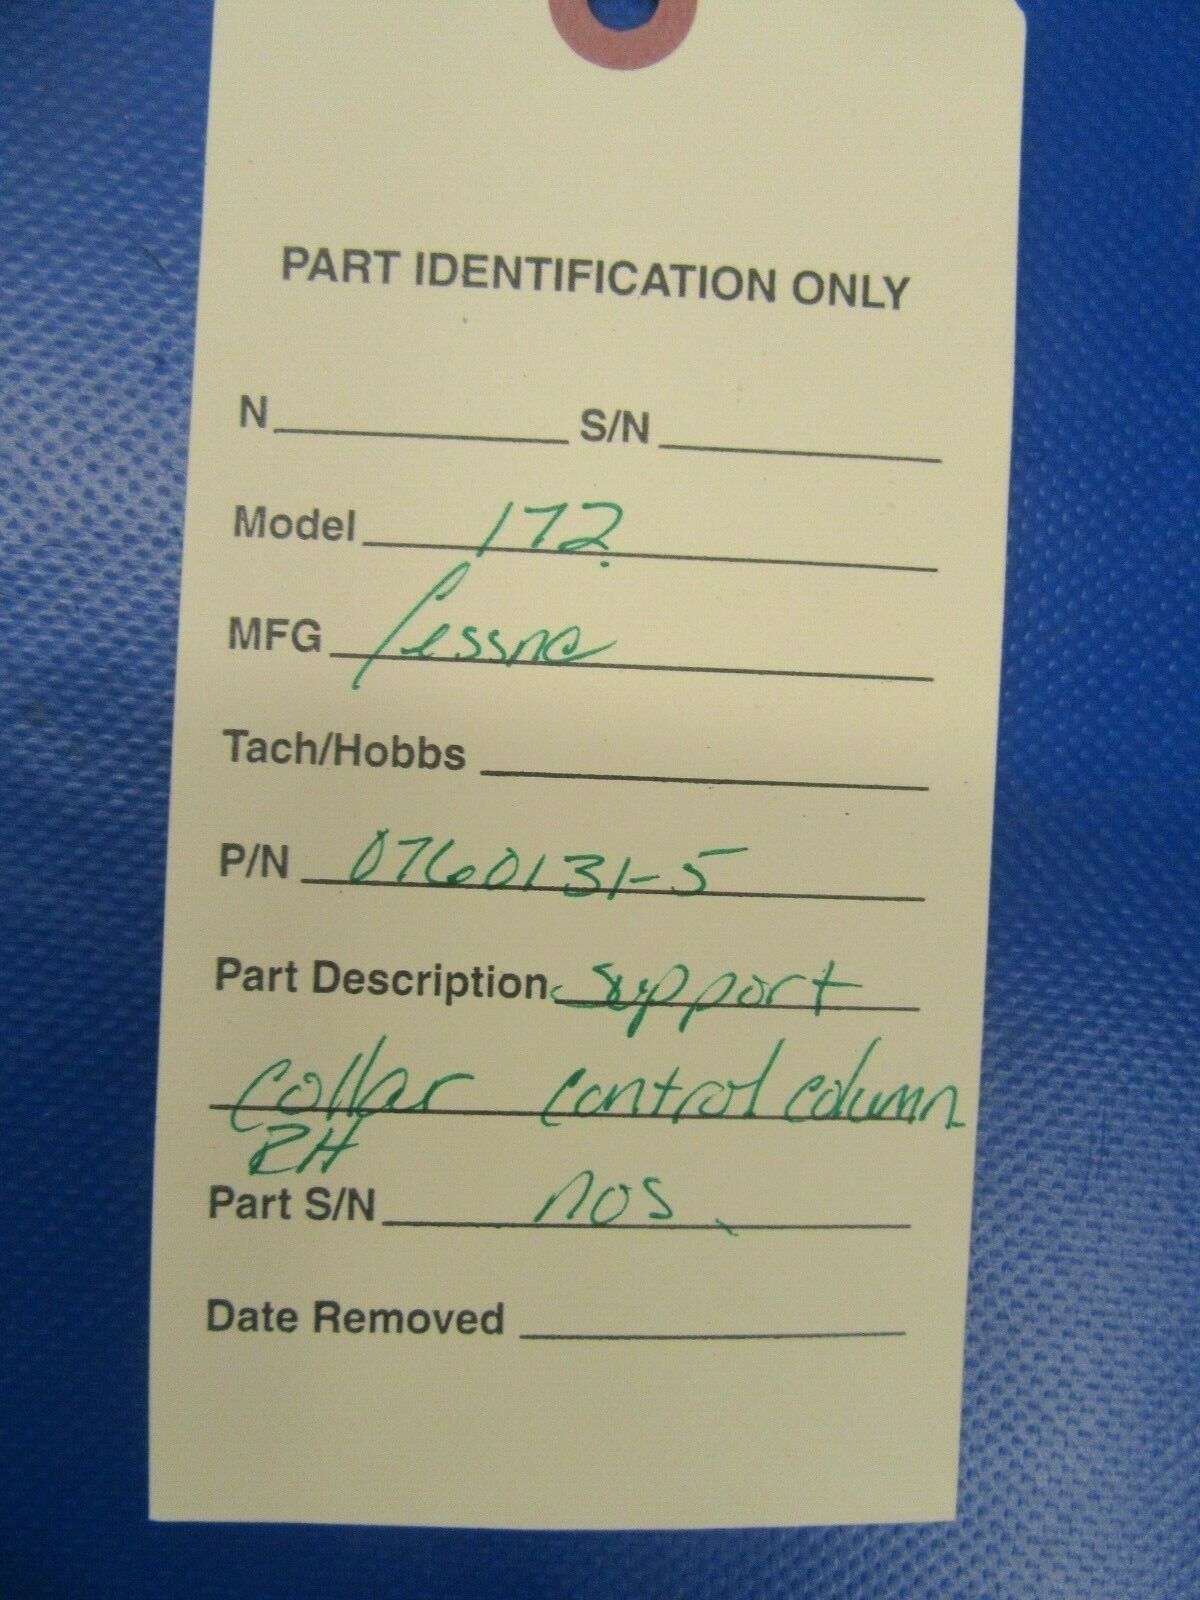 PART IDENTIFICATION ONLY
N S/N
Model 172
MFG Cessna
Tach/Hobbs
P/N 0760131-5
Part Description support
collar control column
RH
Part S/N nos
Date Removed